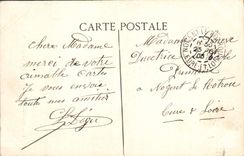 CARTE POSTALE
chère Madame
merci de votre
aimable carte
je vous envoie
toute mon amitié
Léger
Madame
Directrice
à
Nogent le Rotrou
Eure & Loire